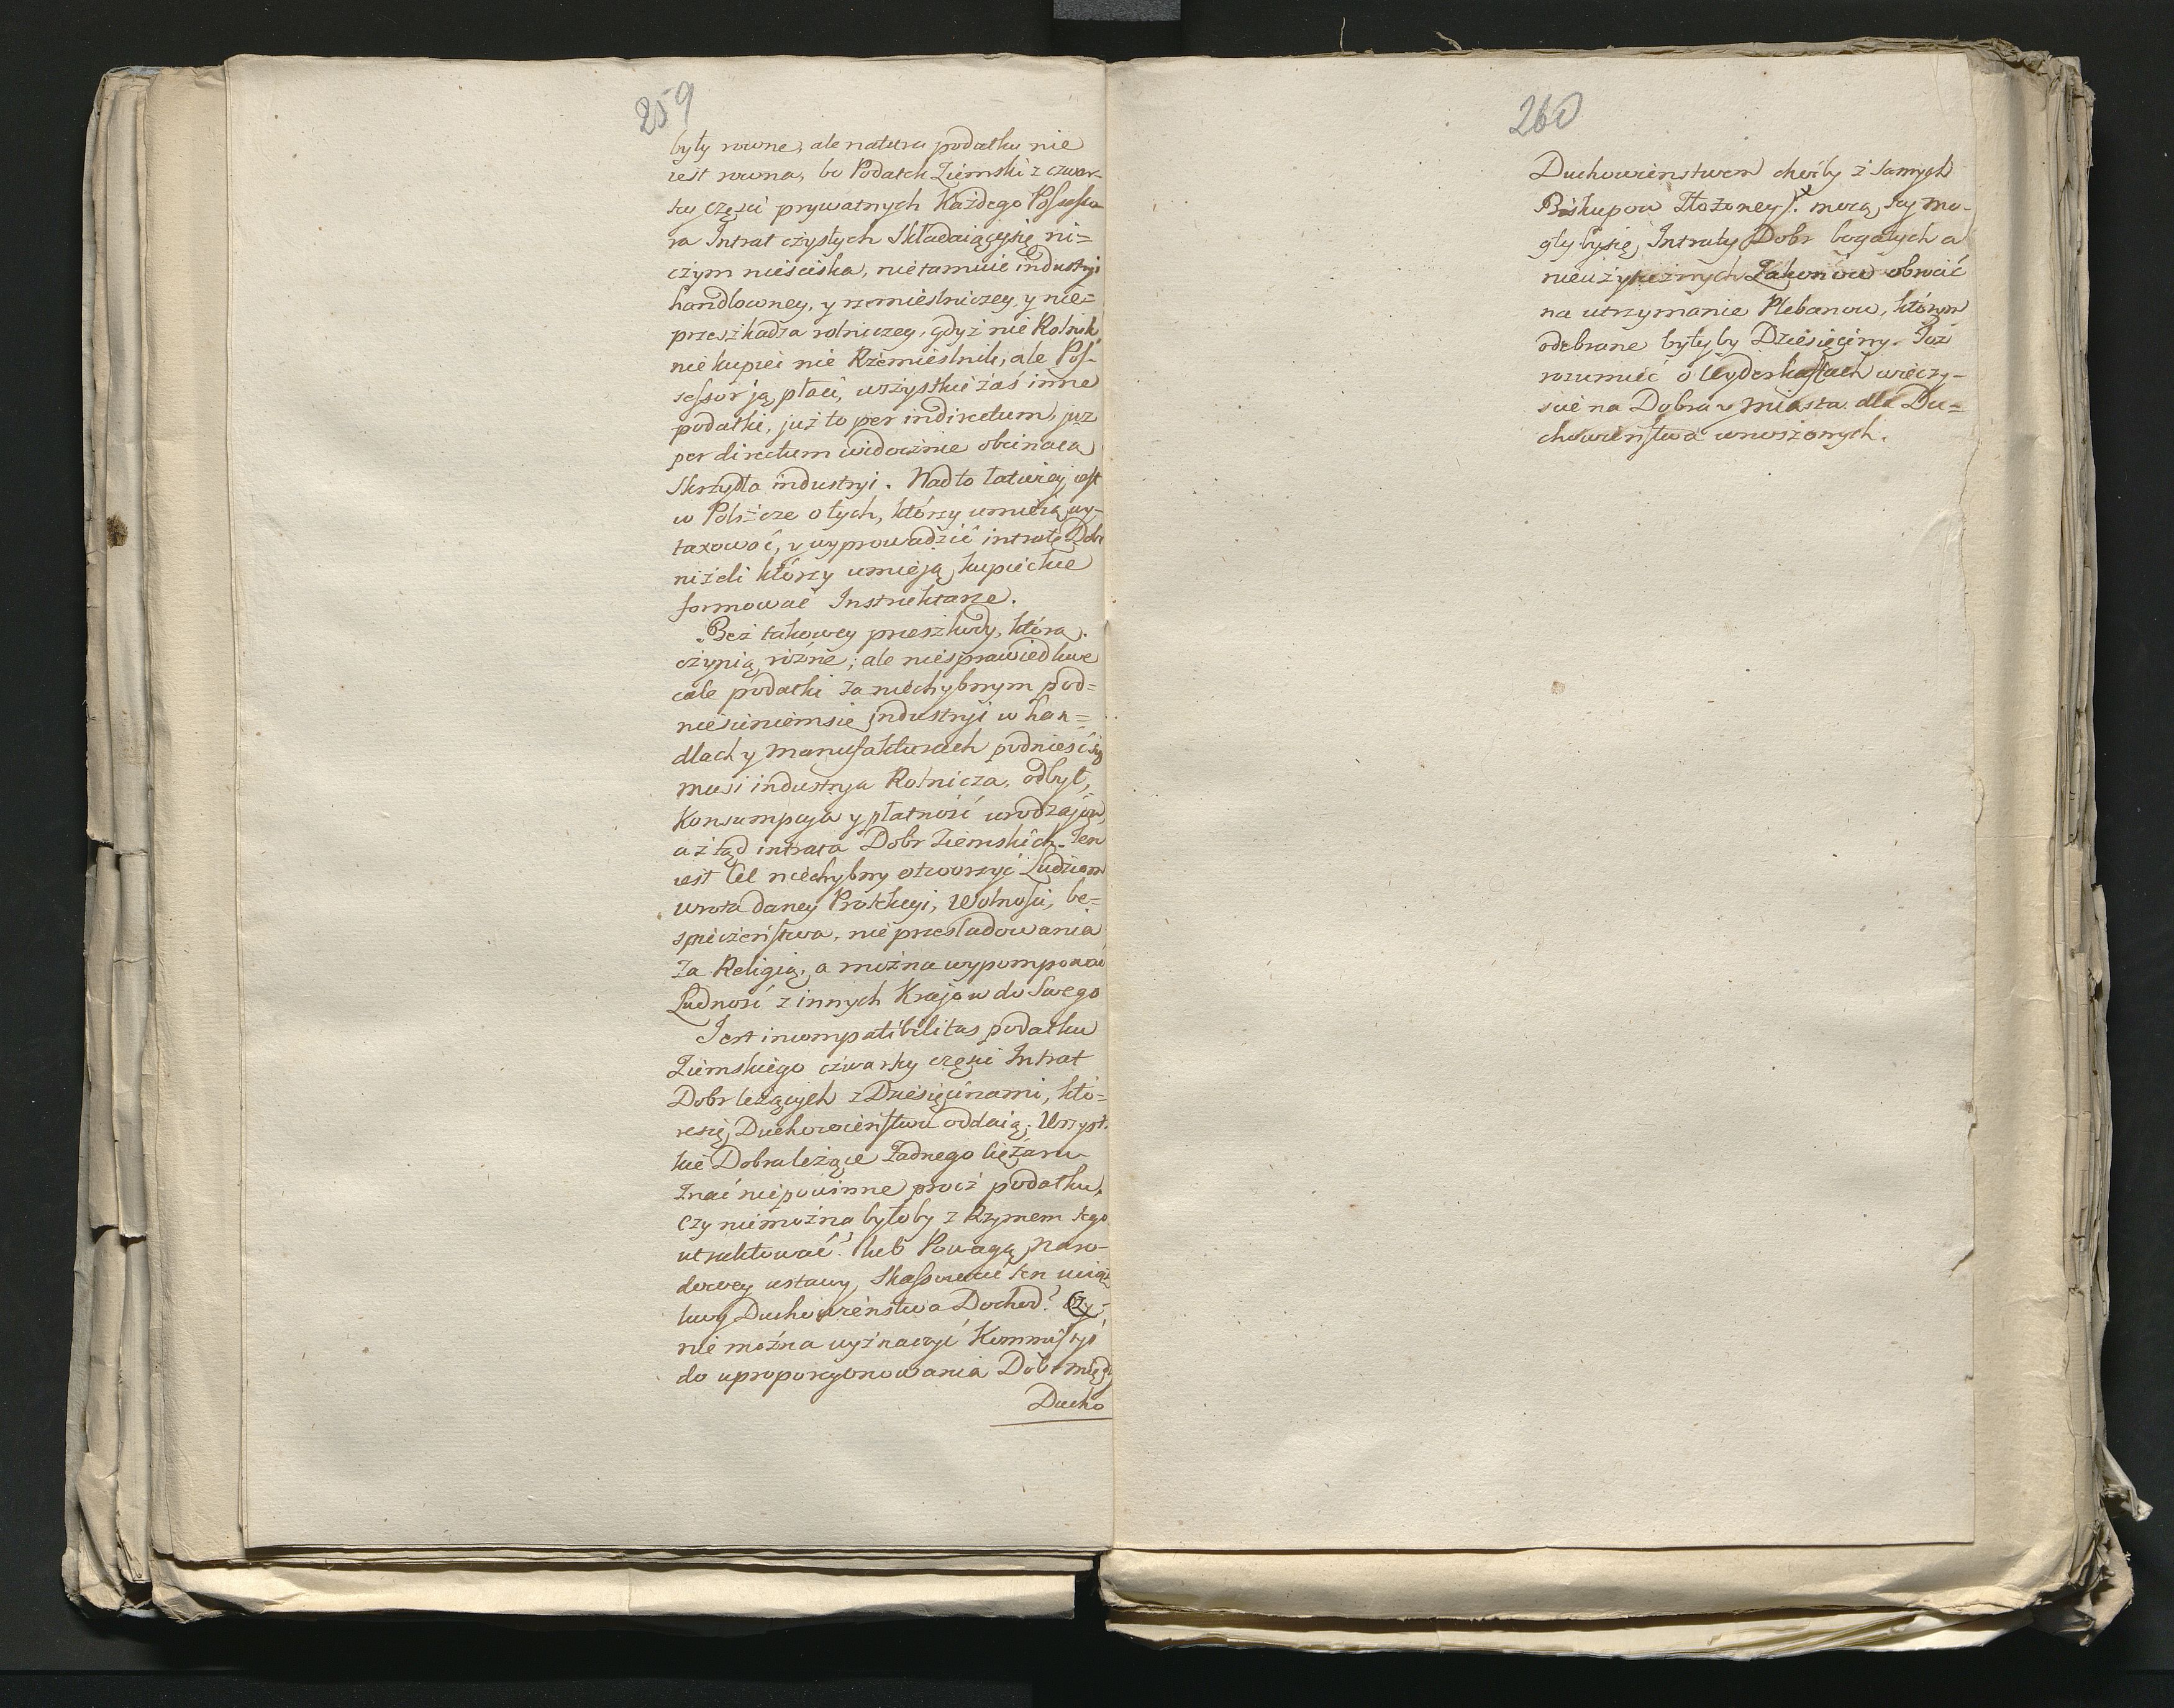 259
były rowne, ale natura podatku nie
iest rowna, bo Podatek Ziemski z czwar-
tey części prywatnych Każdego Possesso-
ra Intrat czystych Składaiącysię ni=
czym nieściska, nietamuie industryi
handlowney, y rzemieslniczey, y nie=
przeszkadza rolniczey, gdyż nie Rolnik
nie kupiec nie Rzemieslnik, ale Pos-
sessor ją płaci, wszystkie zaś inne
podatki, już to per indirectum, już
per directum widocznie obcinaią
Skrzydła industryi. Nadto łatwiey iest
w Polszcze o tych, którzy umieią wy-
taxować, y wyprowadzić intratę Dobr
niżeli którzy umieją kupieckie
formować Instruktarze.
Bez takowey przeszkody, którą
czynią różne; ale niesprawiedliwe
cale podatki za niechybnym pod=
niesieniemsię industryi w han=
dlach y manufakturach podnieść się
musi industrya Rolnicza, odbyt,
Konsumpcya y płatność urodzajow,
a z tąd intrata Dobr Ziemskich. Ten
iest Cel niechybny otworzyć Ludziom
wrota daney Protekcyi, Wolności, be=
spieczeństwa, nie prześladowania
Za Religią, a można wypompować
Ludność z innych Krajow do Swego
Jest incompatibilitas podatku
Ziemskiego czwartey części Intrat
Dobr leżących z Dziesięcinami, któ=
resię Duchowieństwu oddaią; Wszyst-
kie Dobra leżące Żadnego ciężaru
Znać niepowinne procz podatku,
Czy niemożna byłoby z Rzymem tego
utraktować? lub Powagą naro-
dowey ustawy Skassować ten
Duchowieństwa Dochod? Czy
nie można wyznaczyć Kommissyi
do uproporcyonowania Dobr między
Ducho
260
Duchowieństwem choćby z samych
Biskupow Złożoney? mocą tey mo-
głybysię Intraty Dobr bogatych a
nieużytecznych Zakonow obrocić
na utrzymanie Plebanow, którym
odebrane byłyby Dziesięciny. Toż
rozumieć o Wyderkaffach wieczy-
scie na Dobra y miasta dla Du=
chowieństwa wnoszonych.